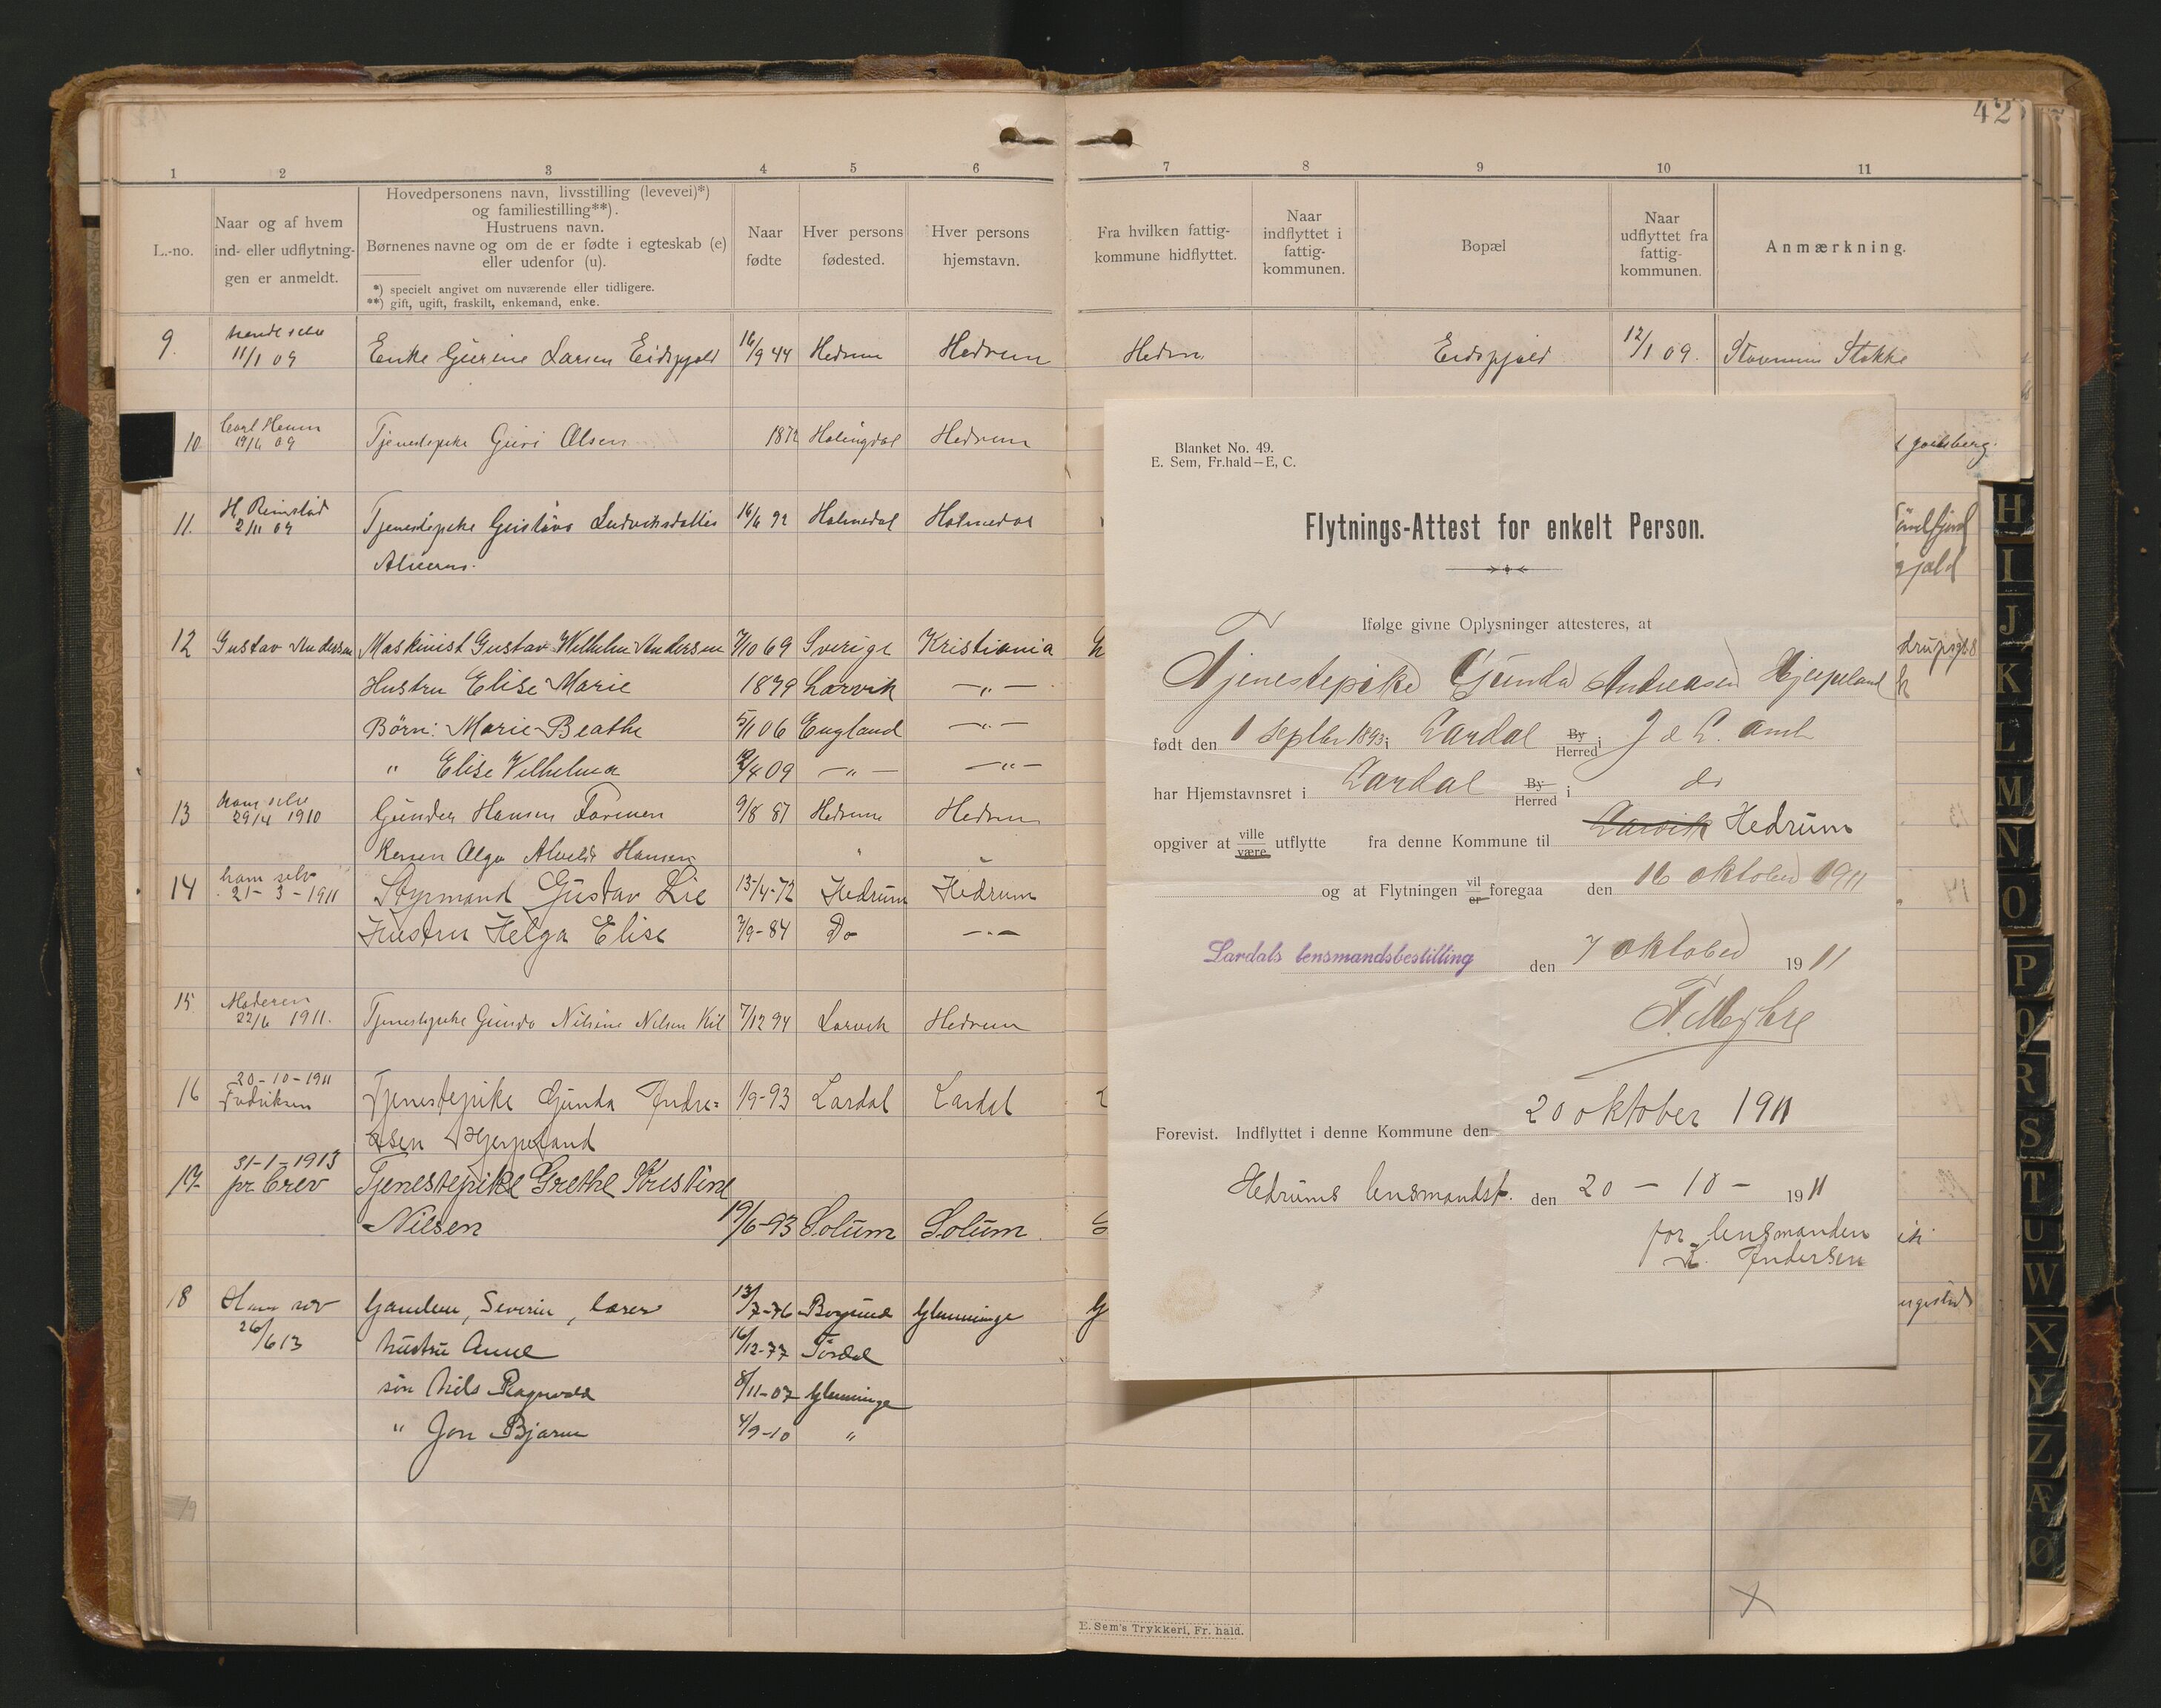 42
1 2 3 4 5 6 7 8 9 10 11
L.-no.
Naar og af hvem
ind- eller udflytning-
gen er anmeldt.
Hovedpersonens navn, livsstilling (levevei)*)
og familiestilling**).
Hustruens navn.
Børnenes navne og om de er fødte i egteskab (e)
eller udenfor (u).
*) specielt angivet om nuværende eller tidligere.
**) gift, ugift, fraskilt, enkemand, enke.
Naar
fødte
Hver persons
fødested.
Hver persons
hjemstavn.
Fra hvilken fattig-
kommune hidflyttet.
Naar
indflyttet i
fattig-
kommunen.
Bopæl
Naar
udflyttet fra
fattig-
kommunen.
Anmærkning.
9. 11/1 09 Enke Gurine Larsen 16/9 44 Hedrum Hedrum Hedrm 12/1 09. Stokke
10 09 Tjenestepike Guri Olsen 1872 Hedrum
11. 2/11 09 Tjenestepike 16/6 92 Holmedal Holmedal
12 Gustav Andersen Maskinist Gustav Wilhelm Andersen 7/10 69 Sverige Kristiania
Hustru Elise Marie 1879 Larvik — „ —
Børn: Marie Beathe 5/1 06 England — „ —
„ Elise Vilhelmina 4 09 — „ — — „ —
13 ham selv 29/4 1910 Gunder Hansen 9/8 87 Hedrum Hedrum
Olga Hansen
14 ham selv 21-3-1911 Styrmand Gustav Lie 13/4-72 Hedrum Hedrum
Hustru Helga Elise 7/9-84 Do — „ —
15 Moderen 22/6 1911. Tjenestepike Gunda Nilsine Nilsen 7/12 94 Larvik Hedrum
16 20-10-1911 Tjenestepike Gunda Andre= 1/9-93 Lardal Lardal
asen Hjerpeland
17 31-1-1913 pr brev Tjenestepike Grethe Kristine
Nilsen 19/6-93 Solum Solum
18 26/6 13 Severin, lærer 13/7-76 Glemminge
hustru Anne 16/12-77
søn Nils Ragnvald 8/11-07 Glemminge
„ Jon Bjarne 4/9-10 „
19
Blanket No. 49.
E. Sem, Fr.hald—E, C.
Flytnings-Attest for enkelt Person.
Ifølge givne Oplysninger attesteres, at
Tjenestepike Gunda Andreasen Hjerpeland
født den 1 Septbr 1893 i Lardal By Herred i J & L. amt
har Hjemstavnsret i Lardal By Herred i do
opgiver at ville være utflytte fra denne Kommune til Larvik Hedrum
og at Flytningen vil er foregaa den 16 oktober 1911
Lardals lensmandsbestilling den 7 oktober 1911
20 oktober 1911
Forevist. Indflyttet i denne Kommune den
Hedrums lensmandsb. den 20 - 10 - 1911
for lensmanden
Andersen
E. Sem's Trykkeri, Fr. hald.
H
I
J
K
L
M
N
O
P
Q
R
S
T
U
W
X
Y
Z
Æ
Ø